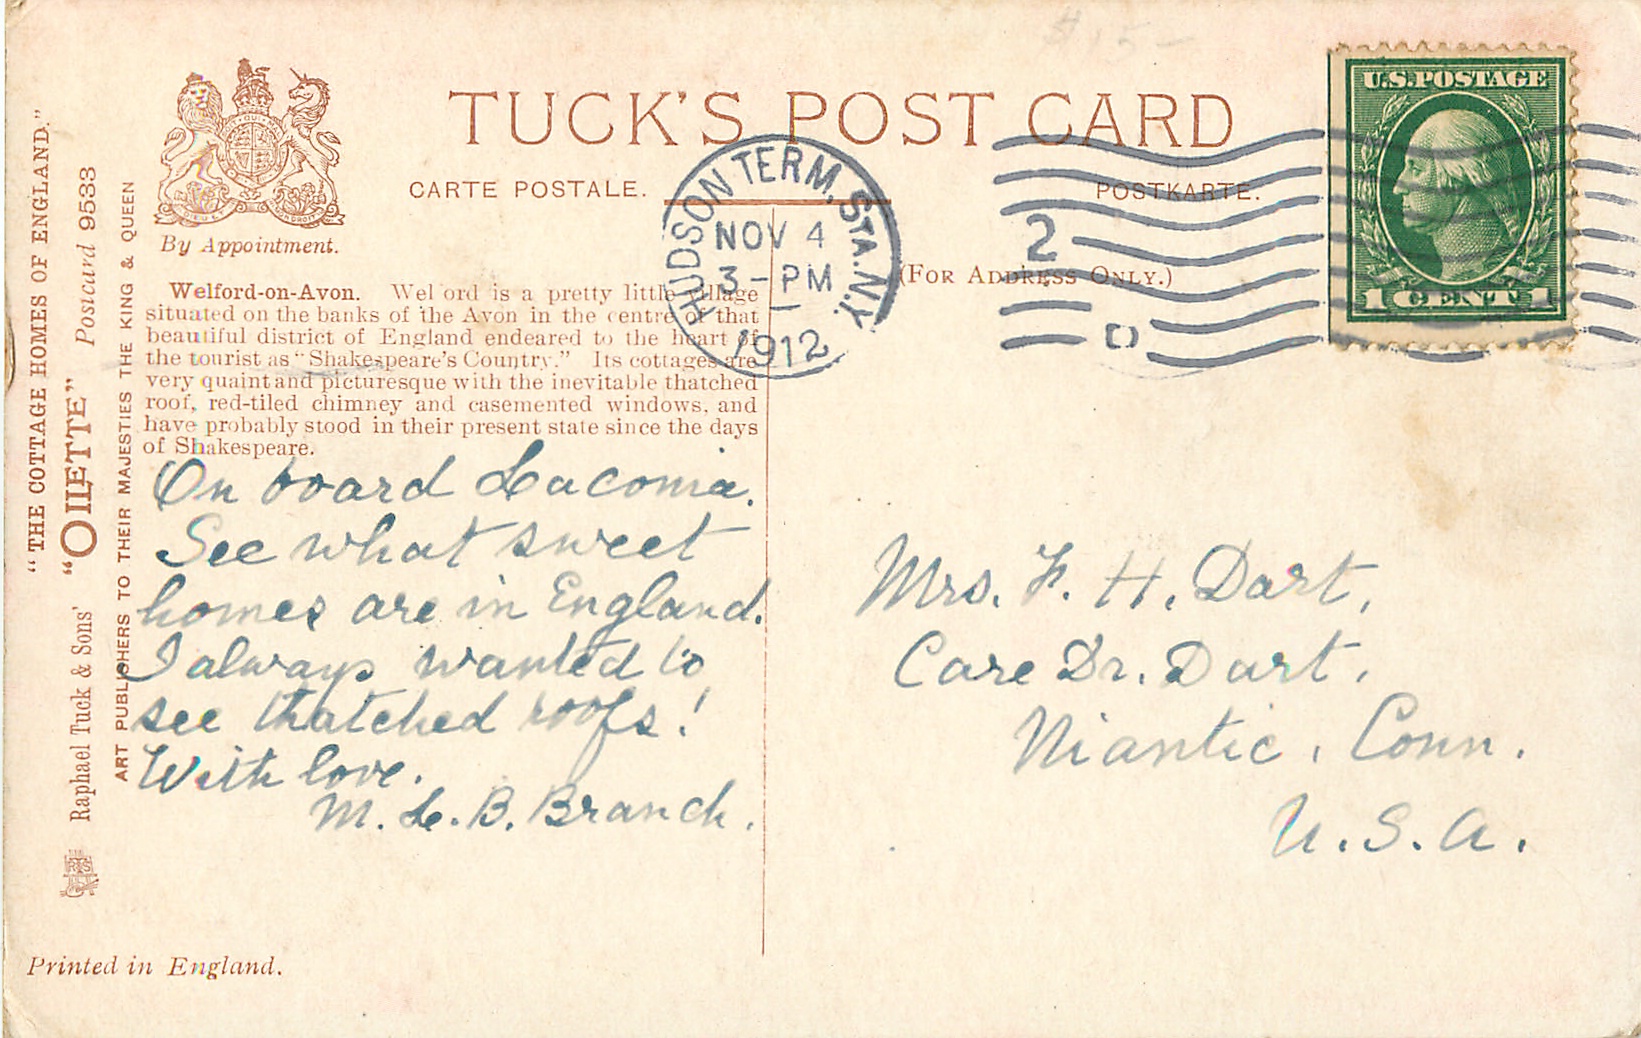 $15-
TUCK'S POST CARD
CARTE POSTALE.
POSTKARTE.
(FOR ADDRESS ONLY.)
By Appointment.
"THE COTTAGE HOMES OF ENGLAND."
Raphael Tuck & Sons' "OILETTE" Postcard 9533
ART PUBLISHERS TO THEIR MAJESTIES THE KING & QUEEN
Welford-on-Avon. Wel ord is a pretty little village
situated on the banks of the Avon in the centre of that
beautiful district of England endeared to the heart of
the tourist as "Shakespeare's Country." Its cottages are
very quaint and picturesque with the inevitable thatched
roof, red-tiled chimney and casemented windows, and
have probably stood in their present state since the days
of Shakespeare.
On board Laconia.
See what sweet
homes are in England.
I always wanted to
see thatched roofs!
With love.
M. L. B. Branch.
HUDSON TERM. STA. N.Y.
NOV 4
3-PM
1912
2
U.S. POSTAGE
1 CENT 1
Mrs. F. H. Dart,
Care Dr. Dart,
Niantic, Conn.
U.S.A.
RTS
Printed in England.